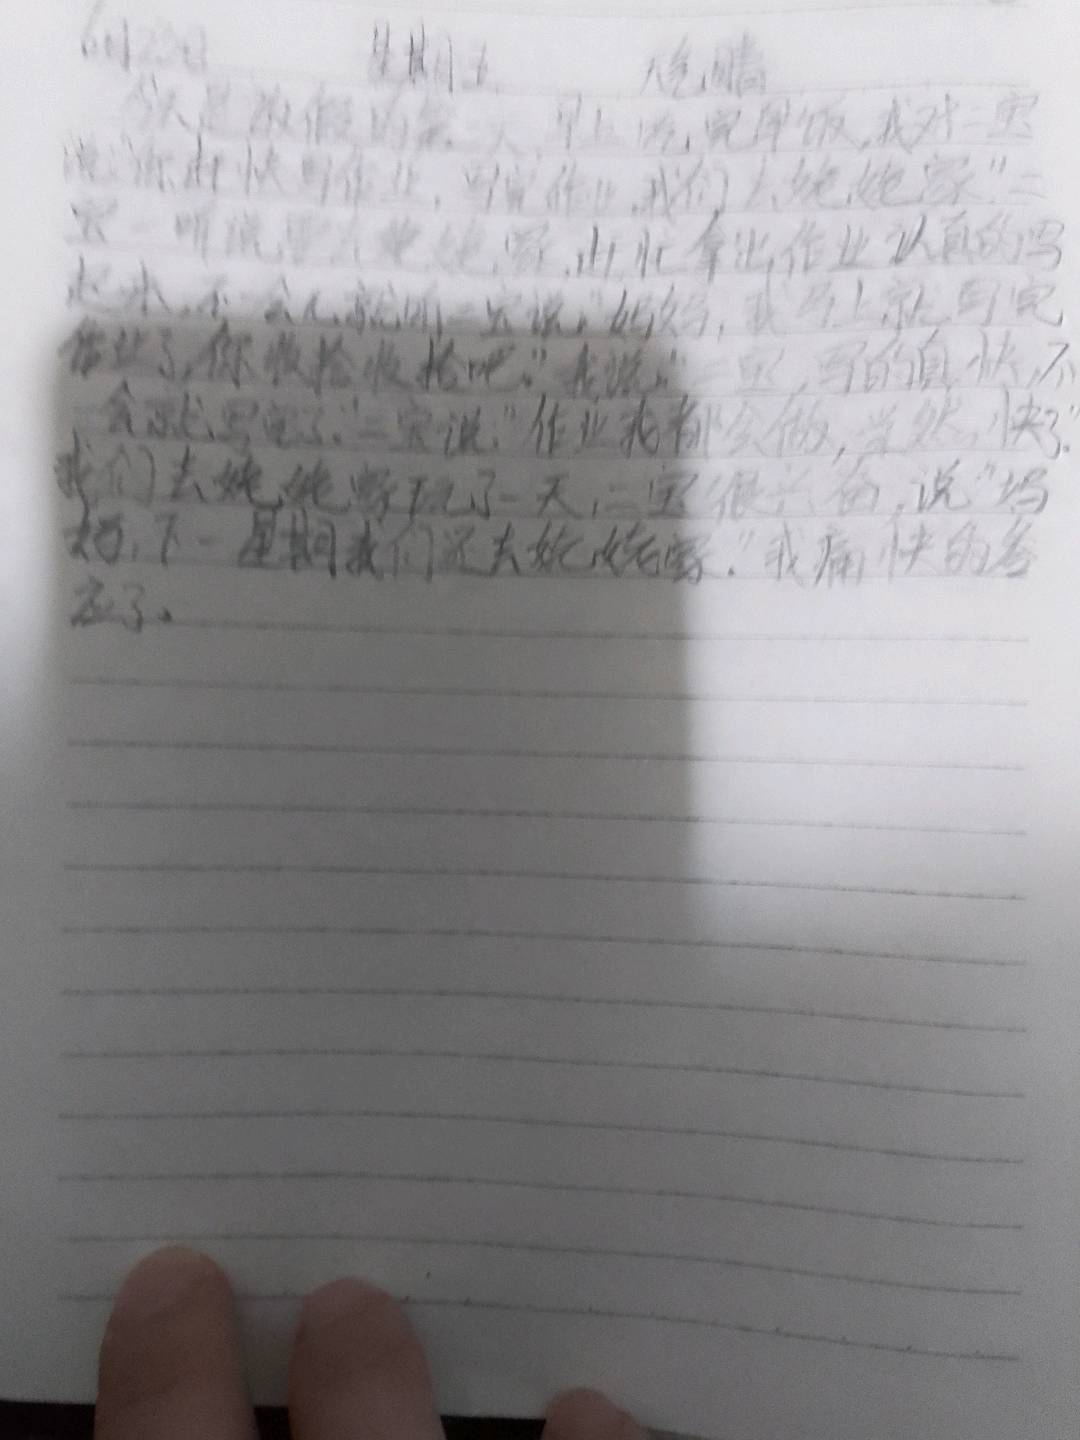 6月23日 星期五 天气晴
今天是放假的第二天,早上吃完早饭,我对二宝
说:“你赶快写作业,写完作业,我们去姥姥家.”二
宝一听说要去姥姥家,赶忙拿出作业认真的写
起来,不一会儿就听二宝说:“妈妈,我马上就写完
作业了,你收拾收拾吧.”我说:“二宝,写的真快,不
一会就写完了.”二宝说:“作业我都会做,当然快了.”
我们去姥姥家玩了一天,二宝很兴奋,说“妈
妈,下一星期我们还去姥姥家.”我痛快的答
应了。